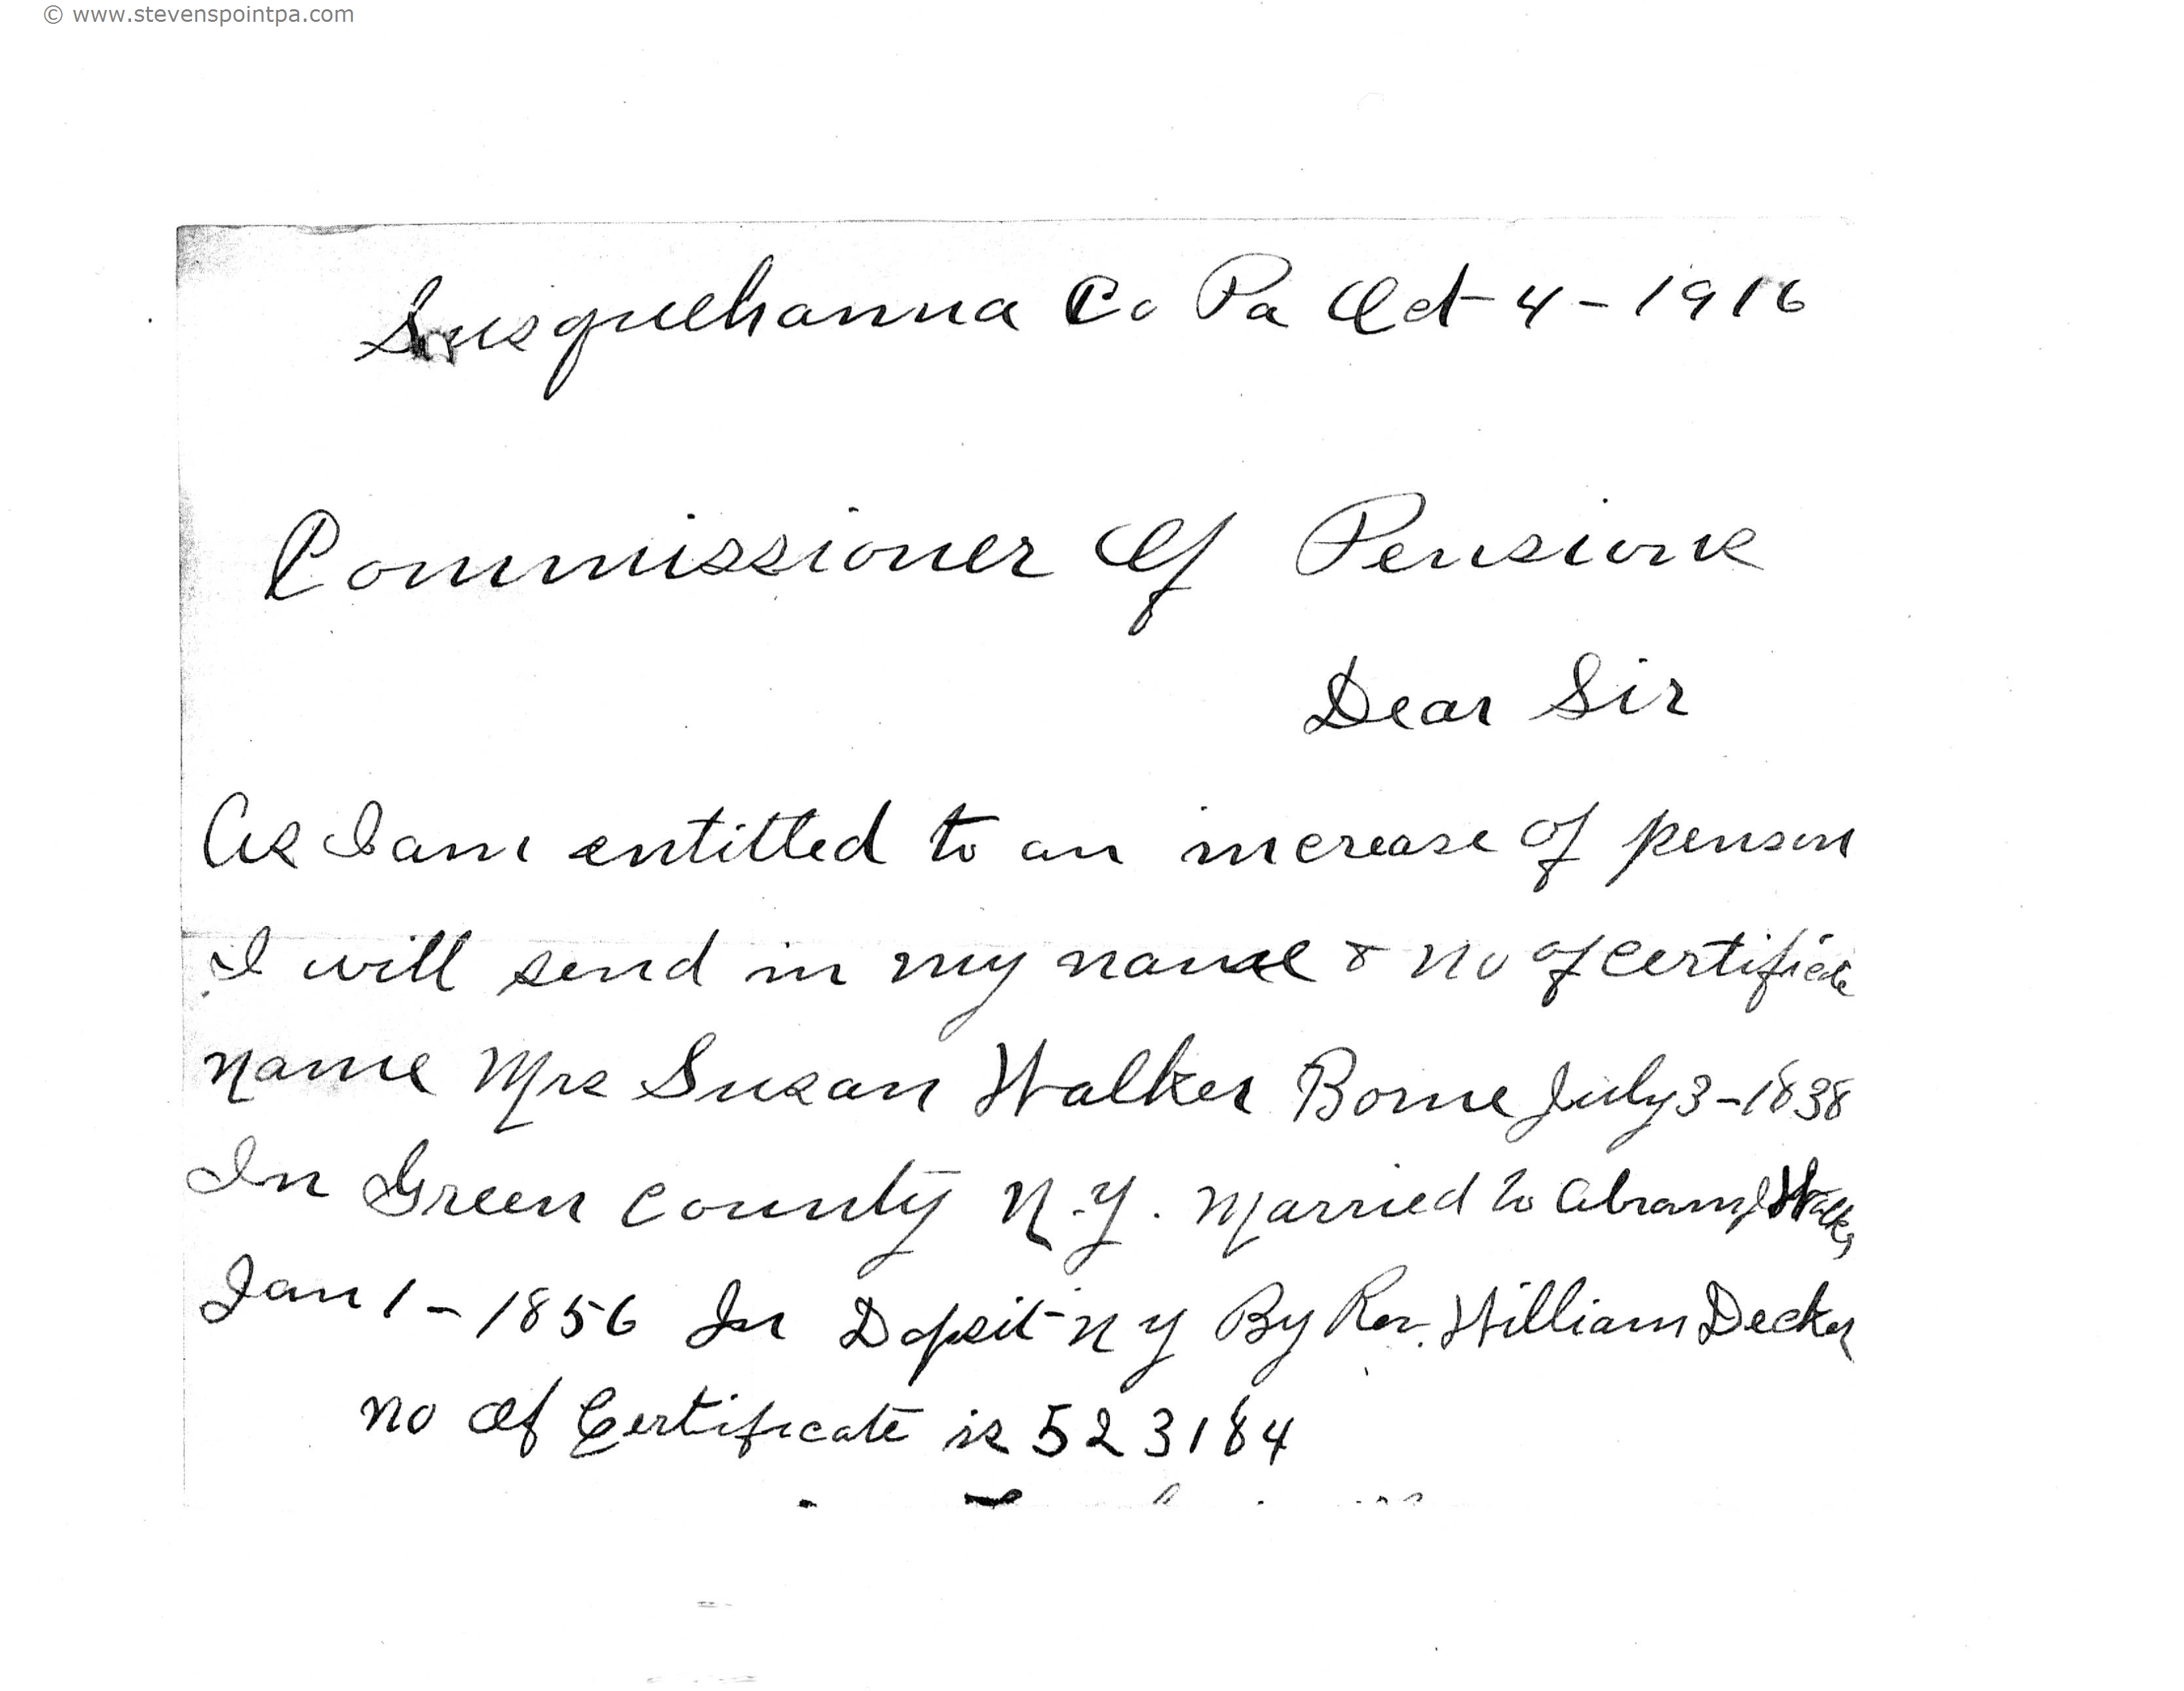 © www.stevenspointpa.com
Susquehanna Co Pa Oct-4-1916
Commissioner Of Pensions
Dear Sir
As I am entitled to an increase of penson
I will send in my name & no of certificate
Name Mrs Susan Walker Borne July 3-1838
In Green County N.Y. Married to Abram J Walker
Jan 1-1856 In Dopsit N Y By Rev. William Decker
No Of Certificate is 523184